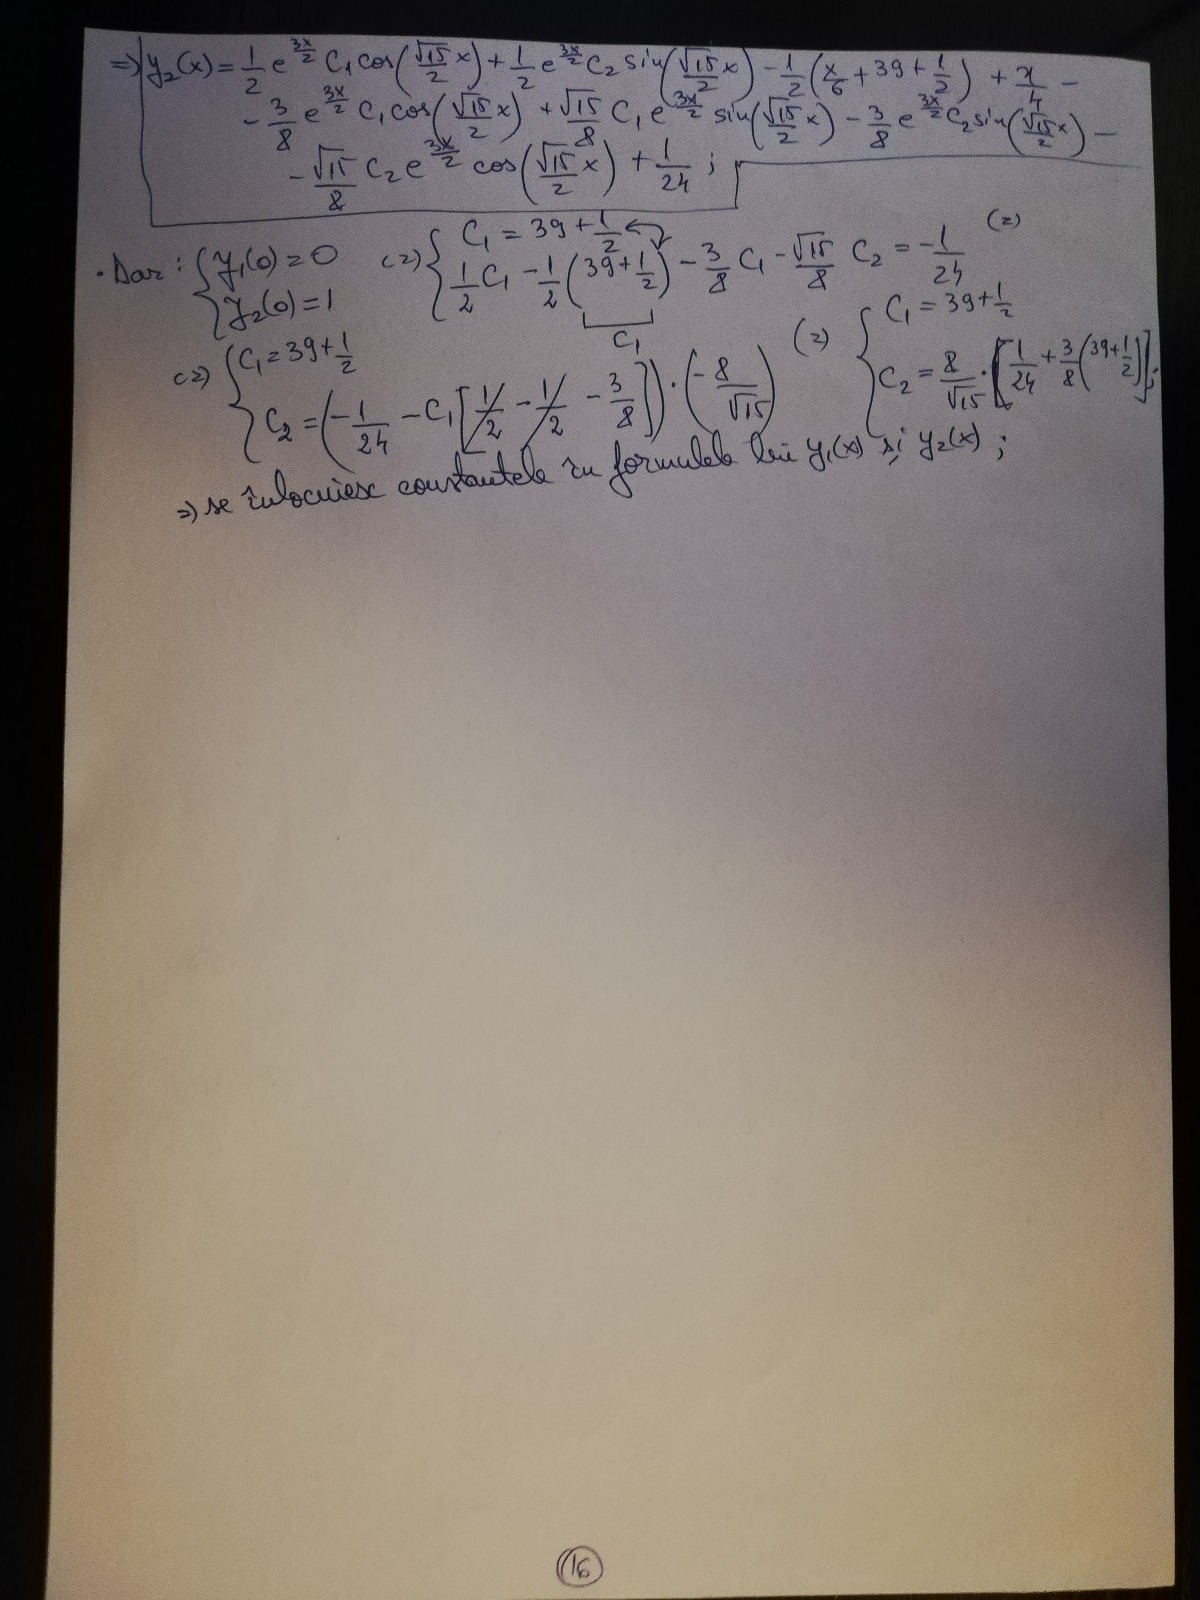 => y₂(x) = 1/2 e^(3x/2) C₁ cos(√15/2 x) + 1/2 e^(3x/2) C₂ sin(√15/2 x) - 1/2 (x/6 + 39 + 1/2) + x/4 -
- 3/8 e^(3x/2) C₁ cos(√15/2 x) + √15/8 C₁ e^(3x/2) sin(√15/2 x) - 3/8 e^(3x/2) C₂ sin(√15/2 x) -
- √15/8 C₂ e^(3x/2) cos(√15/2 x) + 1/24 ;
• Dar : { y₁(0) = 0 <=> { C₁ = 39 + 1/2
y₂(0) = 1 1/2 C₁ - 1/2 (39 + 1/2) - 3/8 C₁ - √15/8 C₂ = -1/24 <=>
C₁
<=> { C₁ = 39 + 1/2 <=> { C₁ = 39 + 1/2
C₂ = (-1/24 - C₁ [1/2 - 1/2 - 3/8]) · (-8/√15) C₂ = 8/√15 · [1/24 + 3/8 (39 + 1/2)] ;
=> se înlocuiesc constantele în formulele lui y₁(x) și y₂(x) ;
16